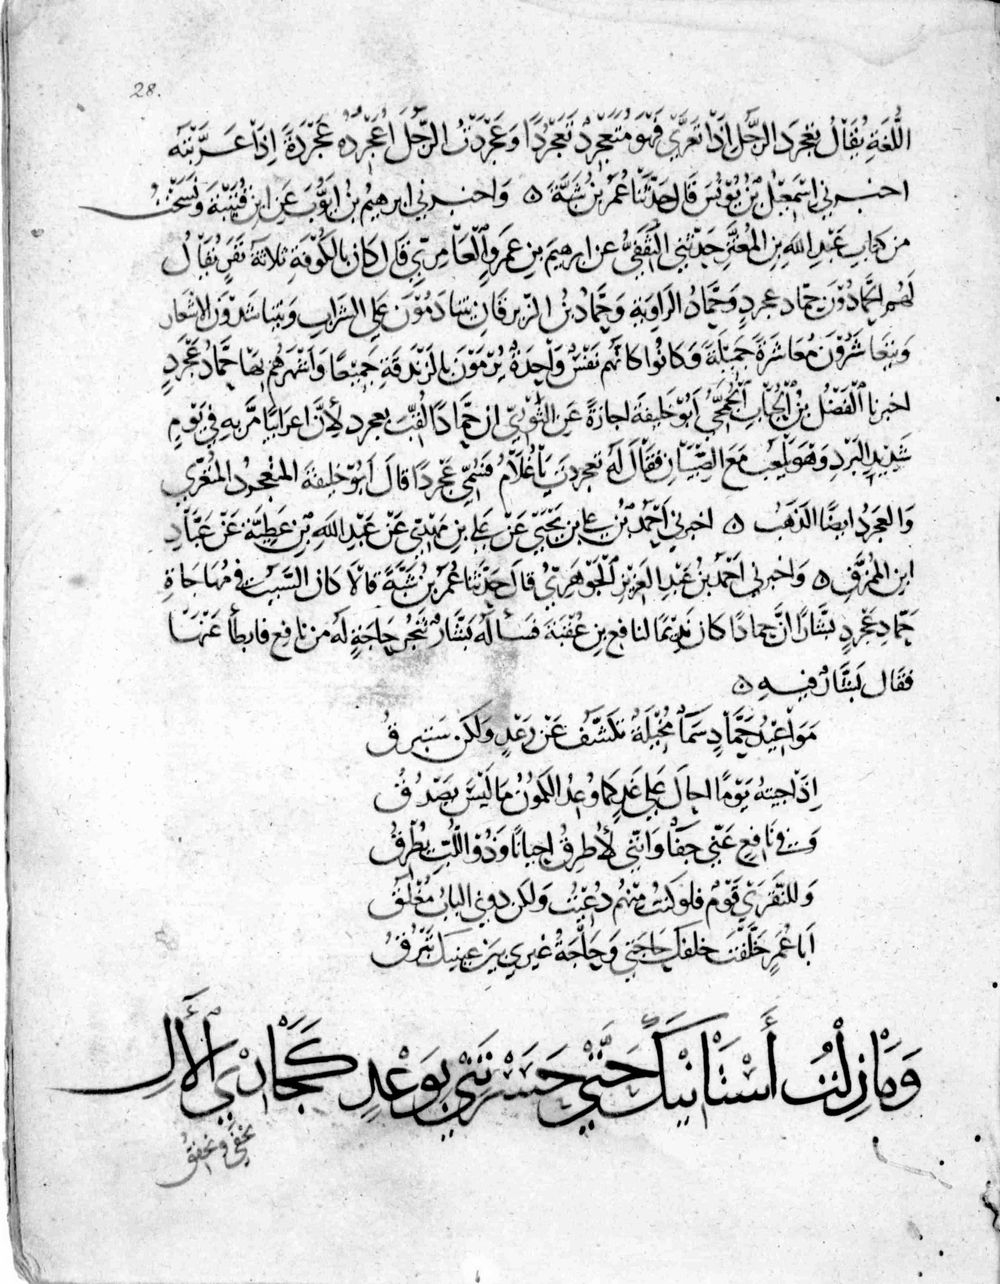 28.
اللُّغَةِ يُقَالُ تعَجْرَدَ الرَّجُلُ إذَا تعَرَّي فَهْوَ مُتَعَجْرِدٌ تَعَجْرُدًا وَعَجْرَدْتُ الرَّجُلَ اُعَجْرِدُهُ عَجْرَدَةً إذَا عَرَّيْتَهُ
اخبرني اسْمَعِيْلُ بْنُ يُوْنُسَ قَالَ حَدَّثَنَا عُمَرُ بْنُ شَبَّةَ ۵ وَاخبرني ابرهيمُ بْنُ ايّوُبَ عَنِ ابنِ قُتَيْبَةَ وَنَسَخْتُ
من كتابِ عَبْدِ اللهِ بنِ المُعْتَزِّ حَدّثَنِي الثَّقَفِيُّ عن ابرهيمَ بنِ عمَرٍو الْعَامِرِيّ قَالَ كان بالكُوفَةِ ثلاثةُ نَفَرٍ يُقَالُ
لَهُم الحَمَّادُوْنَ حمّادُ عجردٍ وَحَمّادُ الرّاوِيةِ وَحَمّادُ بْنُ الزّبرقَانِ يتنادَمُوْنَ عَلَى الشّرَابِ وَيَتَنَاشَدُوْنَ الاشْعَارَ
وَيَتعَاشَرُوْنَ مُعَاشَرَةً جَمِيْلَةً وَكَانُوا كَانّهُم نَفْسٌ وَاحِدَةٌ يُرْمَوْنَ بالزّنْدَقَةِ جَمِيْعًا وَاشْهَرُهُم بها حمّادُ عَجْرَدٍ
اخبرنا الْفَضْلُ بْنُ الْحُبَابِ الْجُمَحِيُّ ابُوْ خَلِيفَةَ اجازةً عَنِ التَّوَّزِيّ ان حَمّادًا لُقِّبَ بعجرد لأنّ اعرَابيًا مَرَّ بهِ في يَوْمٍ
شَدِيْدِ البَرْدِ وَهْوَ يَلْعَبُ مَعَ الصِّبْيَانِ فَقَالَ لَهُ تعجردتَ يَا غُلَامُ فَسُمِّيَ عَجْرَدًا قَالَ ابُوْ خَلِيفَةَ المتَعَجْرِدُ المتعَرّي
وَالعجرَدُ ايضًا الذّهَبُ ۵ اخبرني احْمَدُ بْنُ عليِ بنِ يَحْيَى عَنْ عَليِ بنِ مَهْدِيّ عَنْ عَبْدِ اللهِ بْنِ عَطِيَّةَ عَنْ عَبَّادِ
ابنِ المُمزَّقِ ۵ وَاخبرني احْمَدُ بْنُ عَبْدِ العزيزِ الْجَوْهَرِيُّ قَالَ حَدّثَنَا عُمَرُ بْنُ شَبَّةَ قَالَا كانَ السّبَبُ في مُهَاجَاةِ
حَمّادِ عَجْرَدٍ بشّارًا انَّ حمادًا كانَ نَدِيْمًا لنافعِ بنِ عُقْبَةَ فسَألَهُ بَشّارٌ تَنَجُّزَ حَاجَةٍ لَهُ من نافعٍ فابطأ عَنْهَا
فقال بَشّارٌ فيهِ ۵
مَوَاعِيْدُ حَمّادٍ سَمَاءٌ مُخِيْلَةٌ تكَشَّفُ عَنْ رَعْدٍ وَلكن سَتبرقُ
إذَا جئتهُ يَوْمًا احَالَ عَلَى غَدٍ كما وُعِدَ الكَمُّونُ مَا لَيْسَ يَصْدُقُ
وَفي نَافعٍ عَنّي جَفَاءٌ وَانّنِي لأُطرِقُ احيَانًا وَذُو اللُّبِّ يُطْرِقُ
وَللنّقَرَي قَوْمٌ فلو كنتُ مِنْهُم دُعيتُ وَلكن دوني البابُ مُغْلَقُ
ابَا عُمَرٍ خَلّفْتَ خلفكَ حَاجَتي وَحَاجَةُ غيري بين عينيكَ تَبْرُقُ
وَمَا زِلْتُ أَسْتَانِيْكَ حَتَّي حَسَرْتَنِي بِوَعْدٍ كَجَارِي الْأَلِ
يخفي و يخفقُ